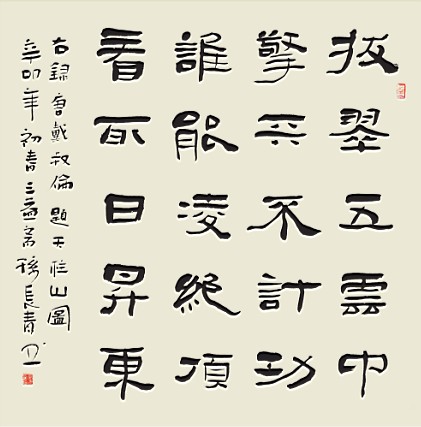 拔翠五雲中
擎天不計功
誰能凌絕頂
看取日昇東
右錄唐戴叔倫題天柱山圖
辛卯年初春三益齋長青